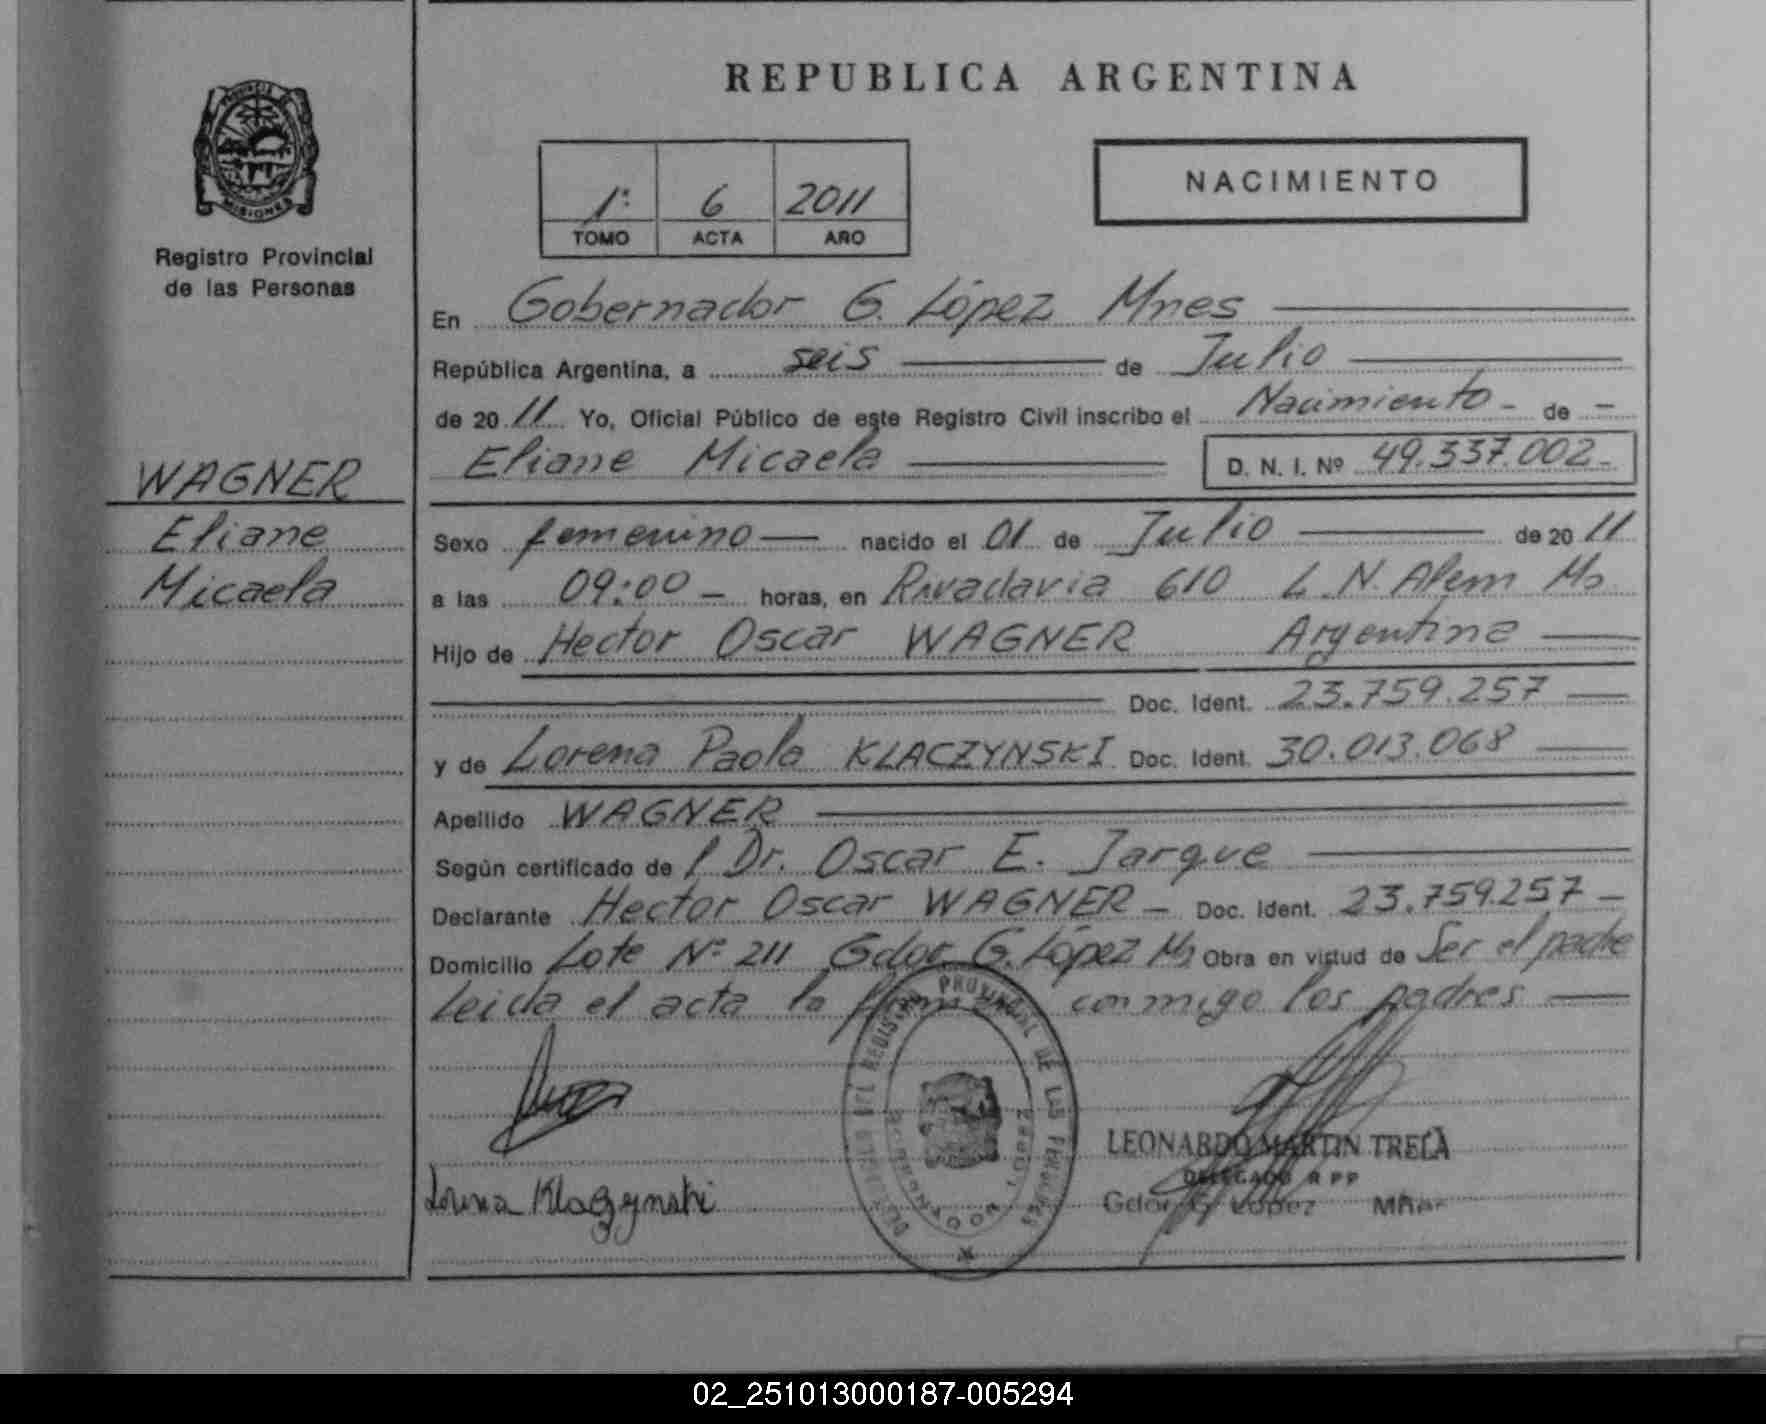 REPUBLICA ARGENTINA
PROVINCIA DE
MISIONES
Registro Provincial
de las Personas
1º 6 2011
TOMO ACTA AÑO
NACIMIENTO
En Gobernador G. López Mnes
República Argentina, a seis de Julio
de 2011 Yo, Oficial Público de este Registro Civil inscribo el Nacimiento - de -
Eliane Micaela D. N. I. Nº 49.337.002 -
WAGNER
Eliane
Micaela
Sexo femenino nacido el 01 de Julio de 2011
a las 09:00 - horas, en Rivadavia 610 L. N. Alem Ms
Hijo de Hector Oscar WAGNER Argentina
Doc. Ident. 23.759.257
y de Lorena Paola KLACZYNSKI Doc. Ident. 30.013.068
Apellido WAGNER
Según certificado de l Dr. Oscar E. Jarque
Declarante Hector Oscar WAGNER - Doc. Ident. 23.759.257 -
Domicilio Lote Nº 211 Gdor G. López Ms Obra en virtud de Ser el padre
Leida el acta la conmigo los padres
PROVINCIAL DE LAS PERSONAS
LEONARDO MARTIN TRELA
DELEGADO R P P
Gdor. G. Lopez Mnes
Lorena Klaczynski
02_251013000187-005294